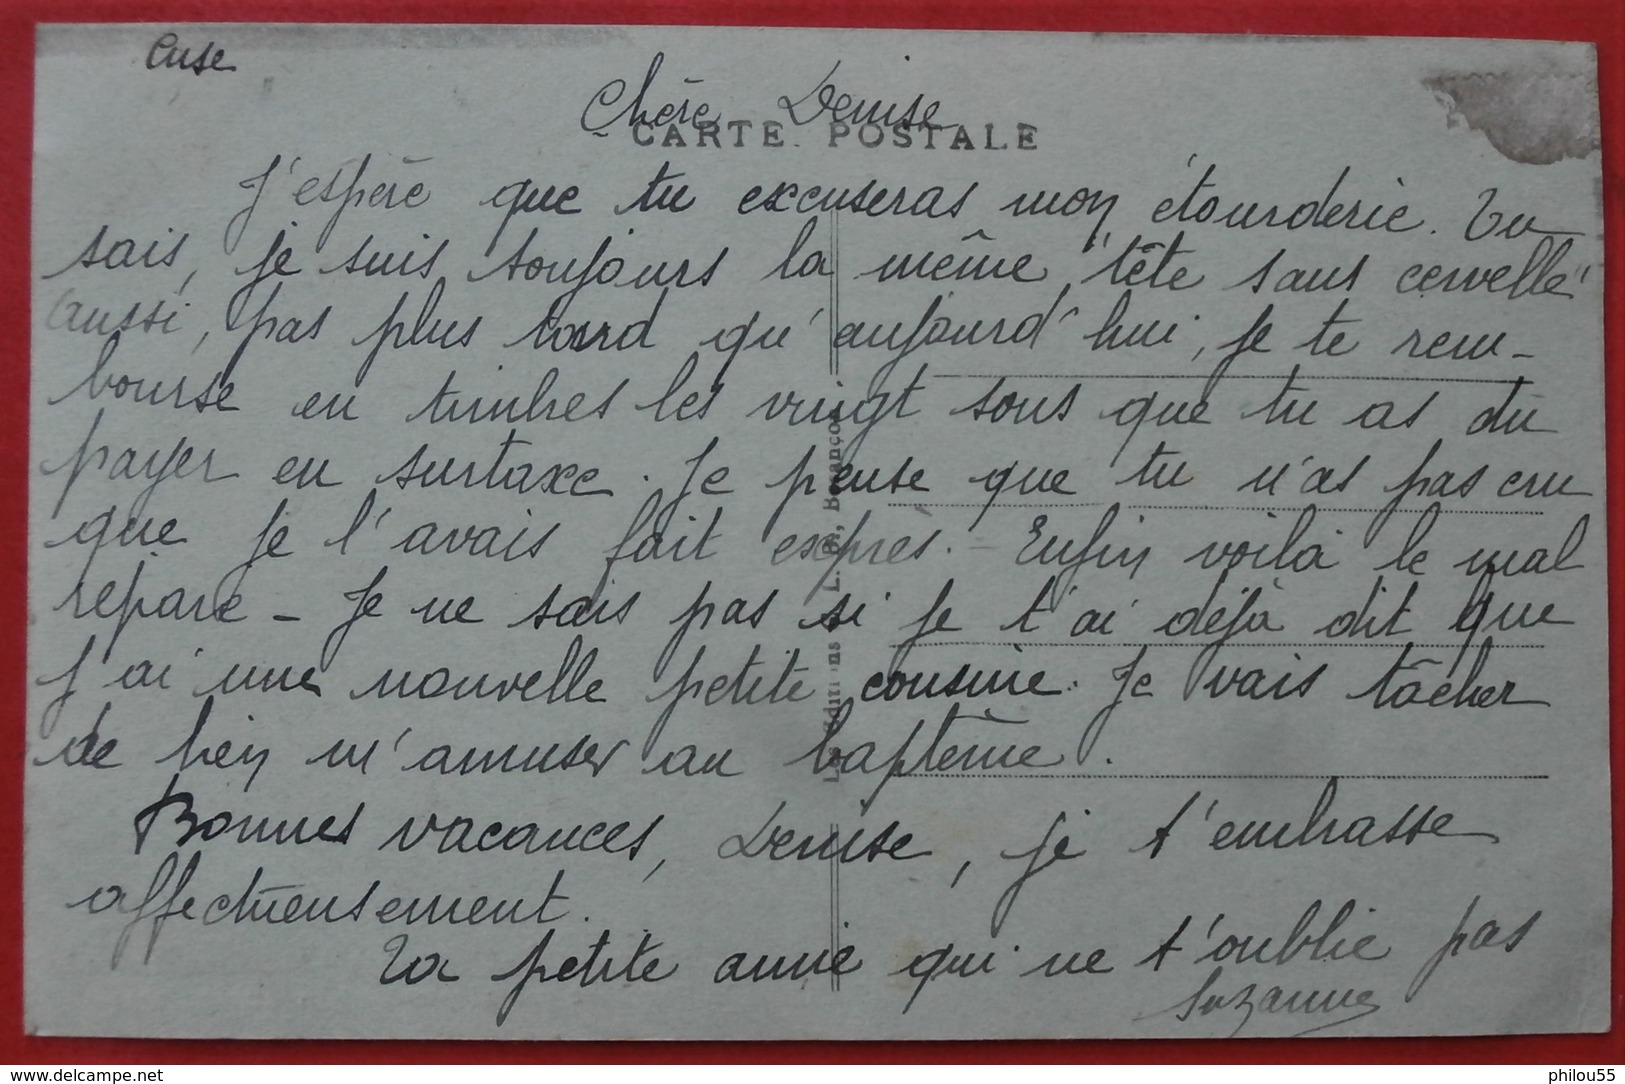 Cuse
Chère Denise
CARTE POSTALE
J'espère que tu excuseras mon étourderie. Tu
sais, je suis toujours la même "tête sans cervelle"
Aussi, pas plus tard qu'aujourd'hui, je te rem-
bourse en timbres les vingt sous que tu as dû
payer en surtaxe. Je pense que tu n'as pas cru
que je l'avais fait exprès. - Enfin voilà le mal
réparé - Je ne sais pas si je t'ai déjà dit que
j'ai une nouvelle petite cousine. Je vais tâcher
de bien m'amuser au baptême.
Bonnes vacances, Denise, je t'embrasse
affectueusement.
Ta petite amie qui ne t'oublie pas
Suzanne
Les Éditions L. B., Besançon
delcampe.net
philou55